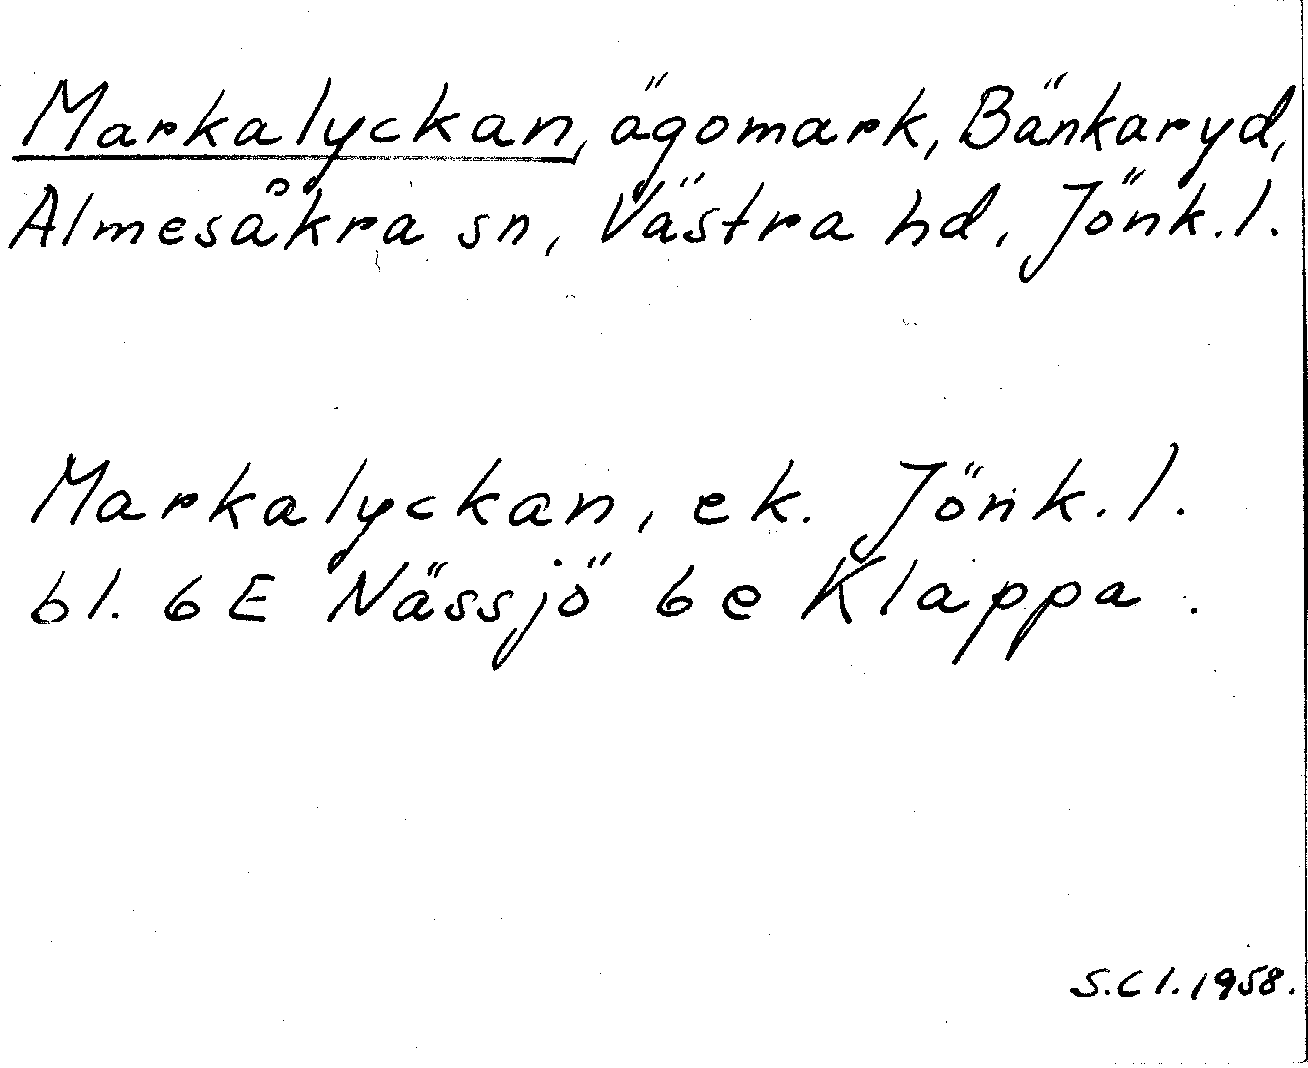 Markalyckan, ägomark, Bänkaryd,
Almesåkra sn, Västra hd, Jönk.l.
Markalyckan, ek. Jönk.l.
bl. 6E Nässjö 6e Klappa.
S.Cl.1958.